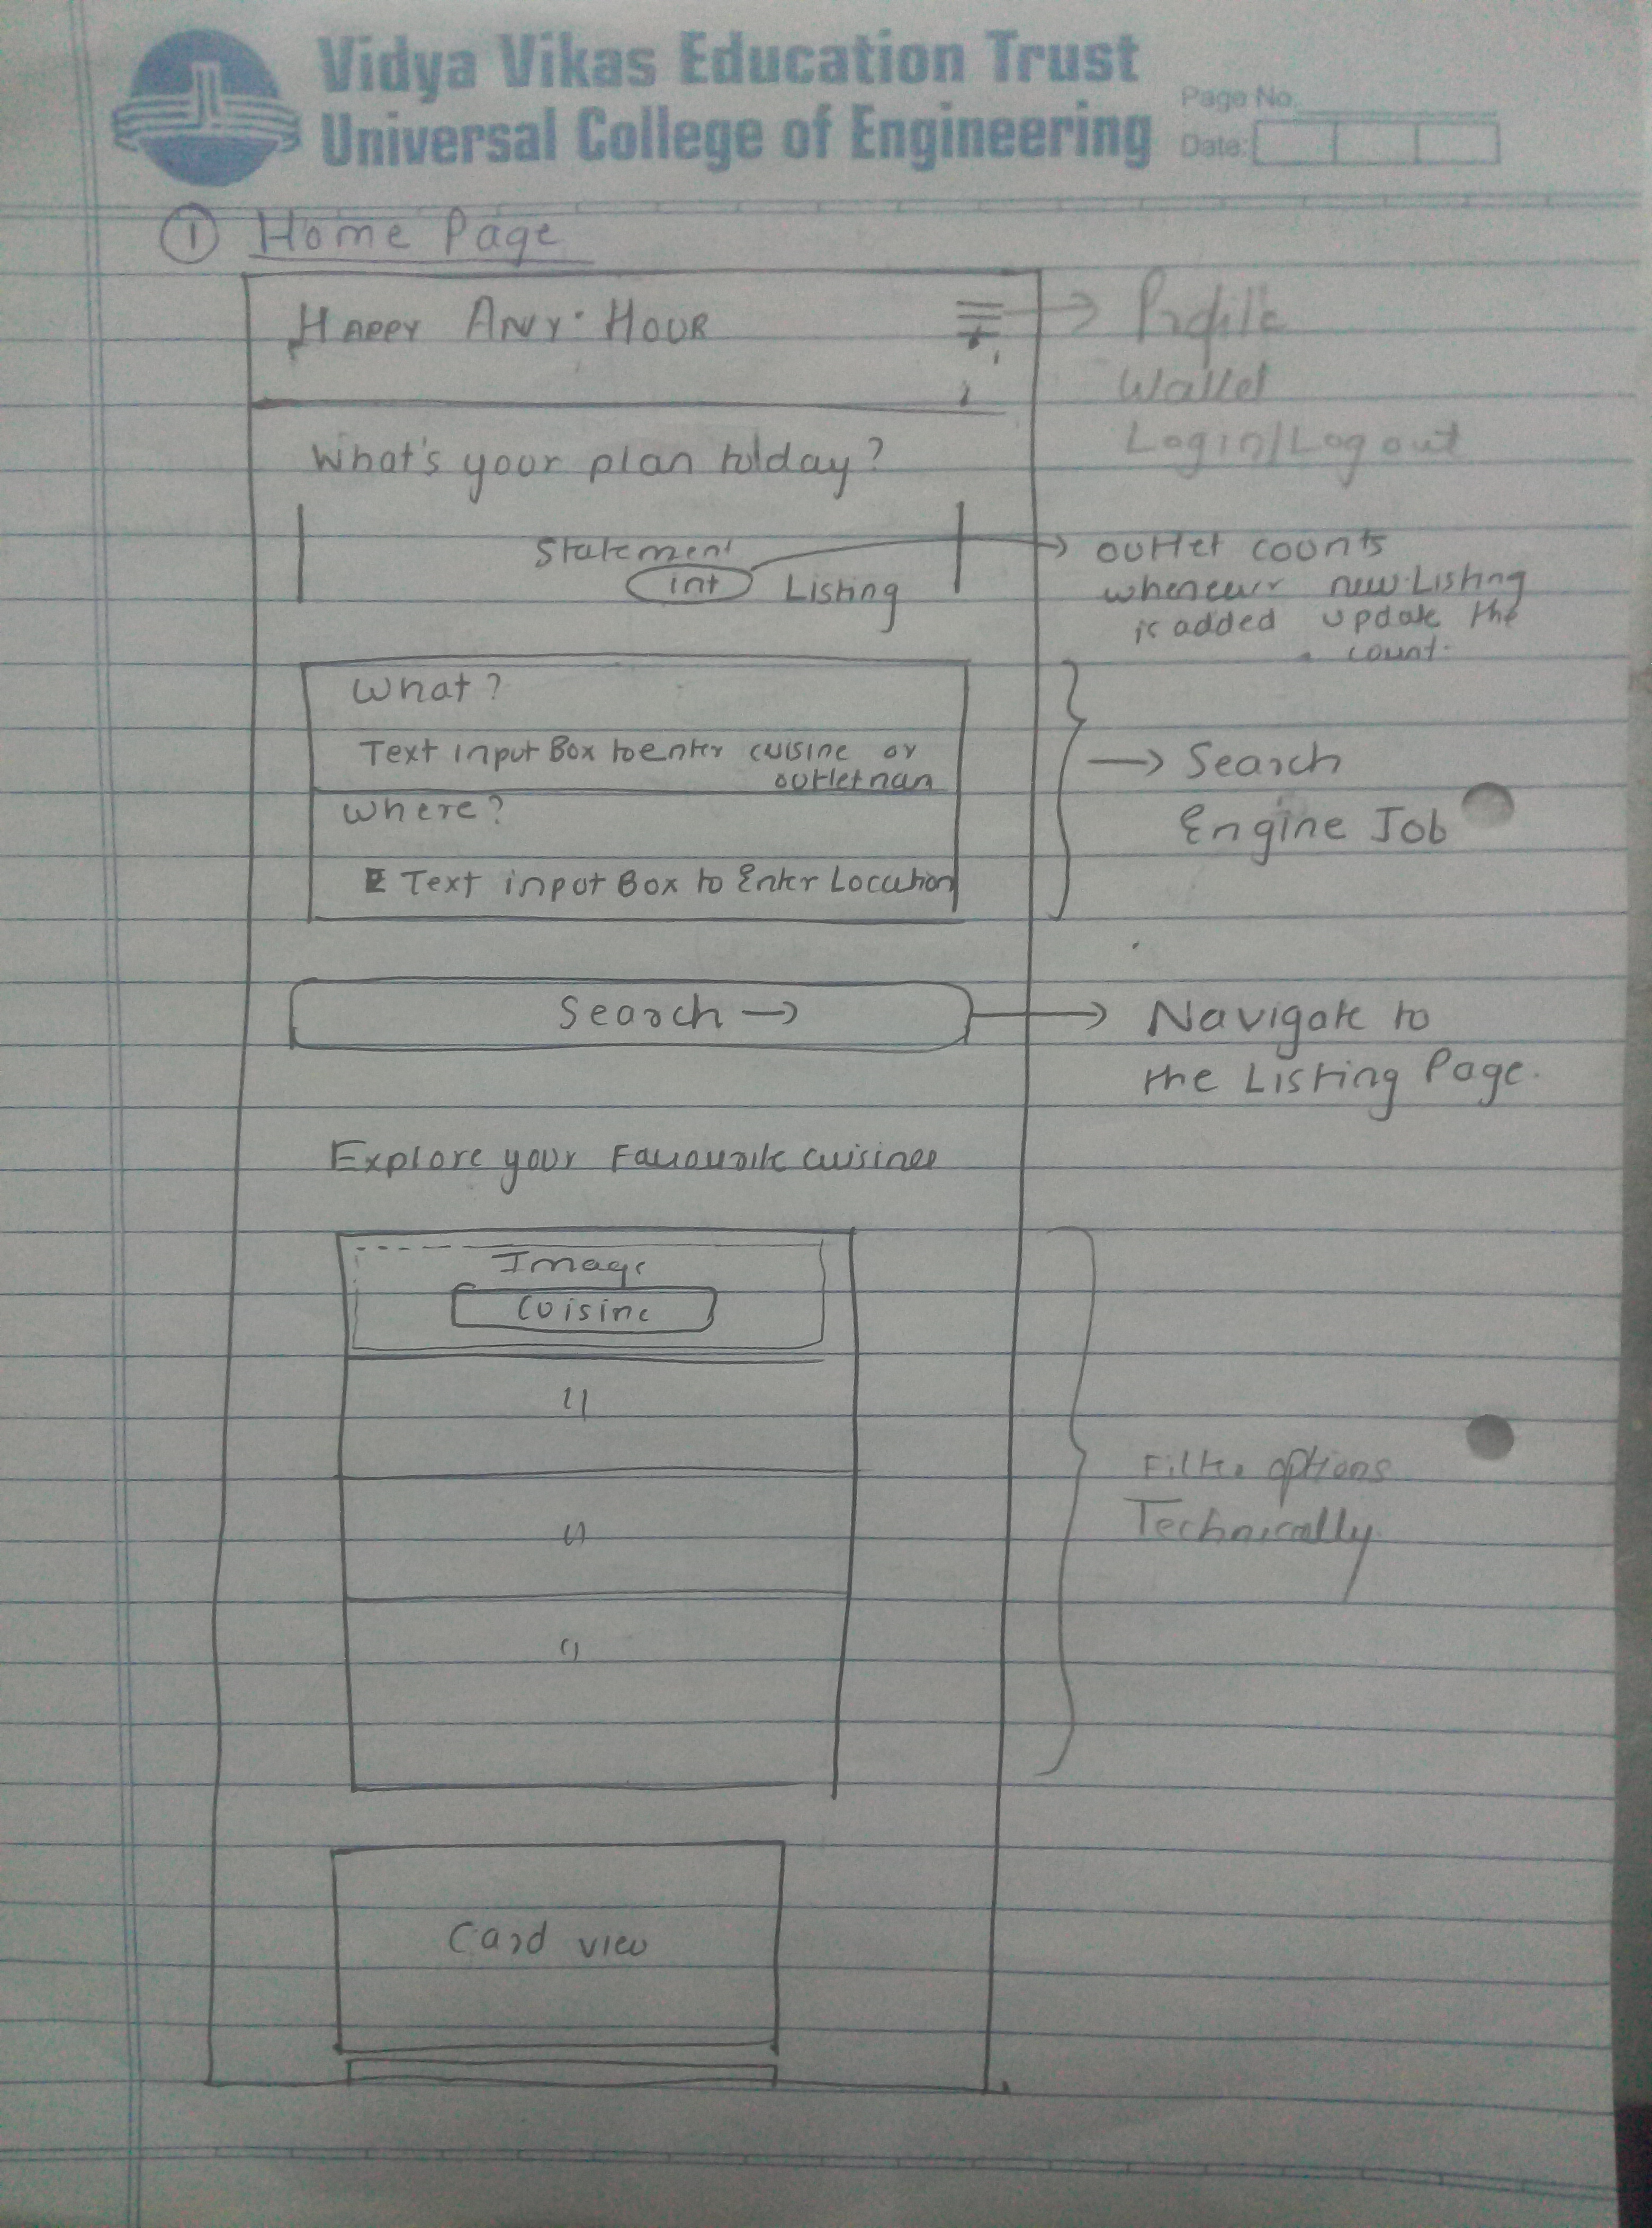 Vidya Vikas Education Trust
Universal College of Engineering
Page No.
Date:
① Home Page
HAPPY ANY·HOUR
Profile
Wallet
Login/Logout
What's your plan today?
Statement
int Listing
outlet counts
whenever new Listing
is added update the
count.
What?
Text input Box to enter cuisine or
outlet nam
Where?
Text input Box to Enter Location
→ Search
Engine Job
Search →
Navigate to
the Listing Page.
Explore your Favourite cuisines
Image
Cuisine
Filter options
Technically
Card view